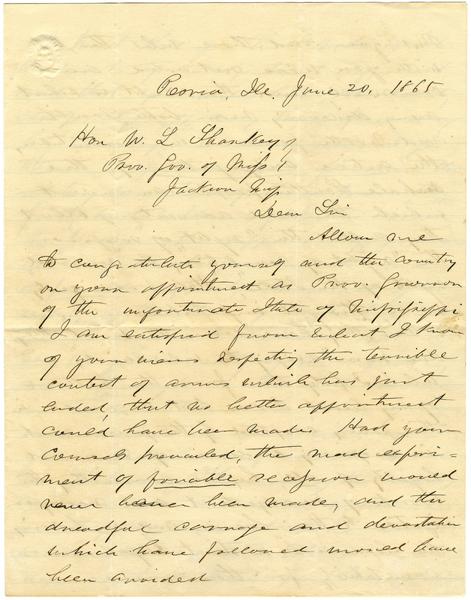 Peoria, Ill. June 20, 1865
Hon W. L Sharkey
Prov. Gov. of Miss
Jackson Mis
Dear Sir
Allow me
to congratulate yourself and the country
on your appointment as Prov. Governor
of the unfortunate State of Mississippi
I am satisfied from what I know
of your views respecting the terrible
contest of arms which has just
ended, that no better appointment
could have been made. Had your
Counsels prevailed, the mad experi-
ment of forcible secession would
never have been made, and the
dreadful carnage and devastation
which have followed would have
been avoided